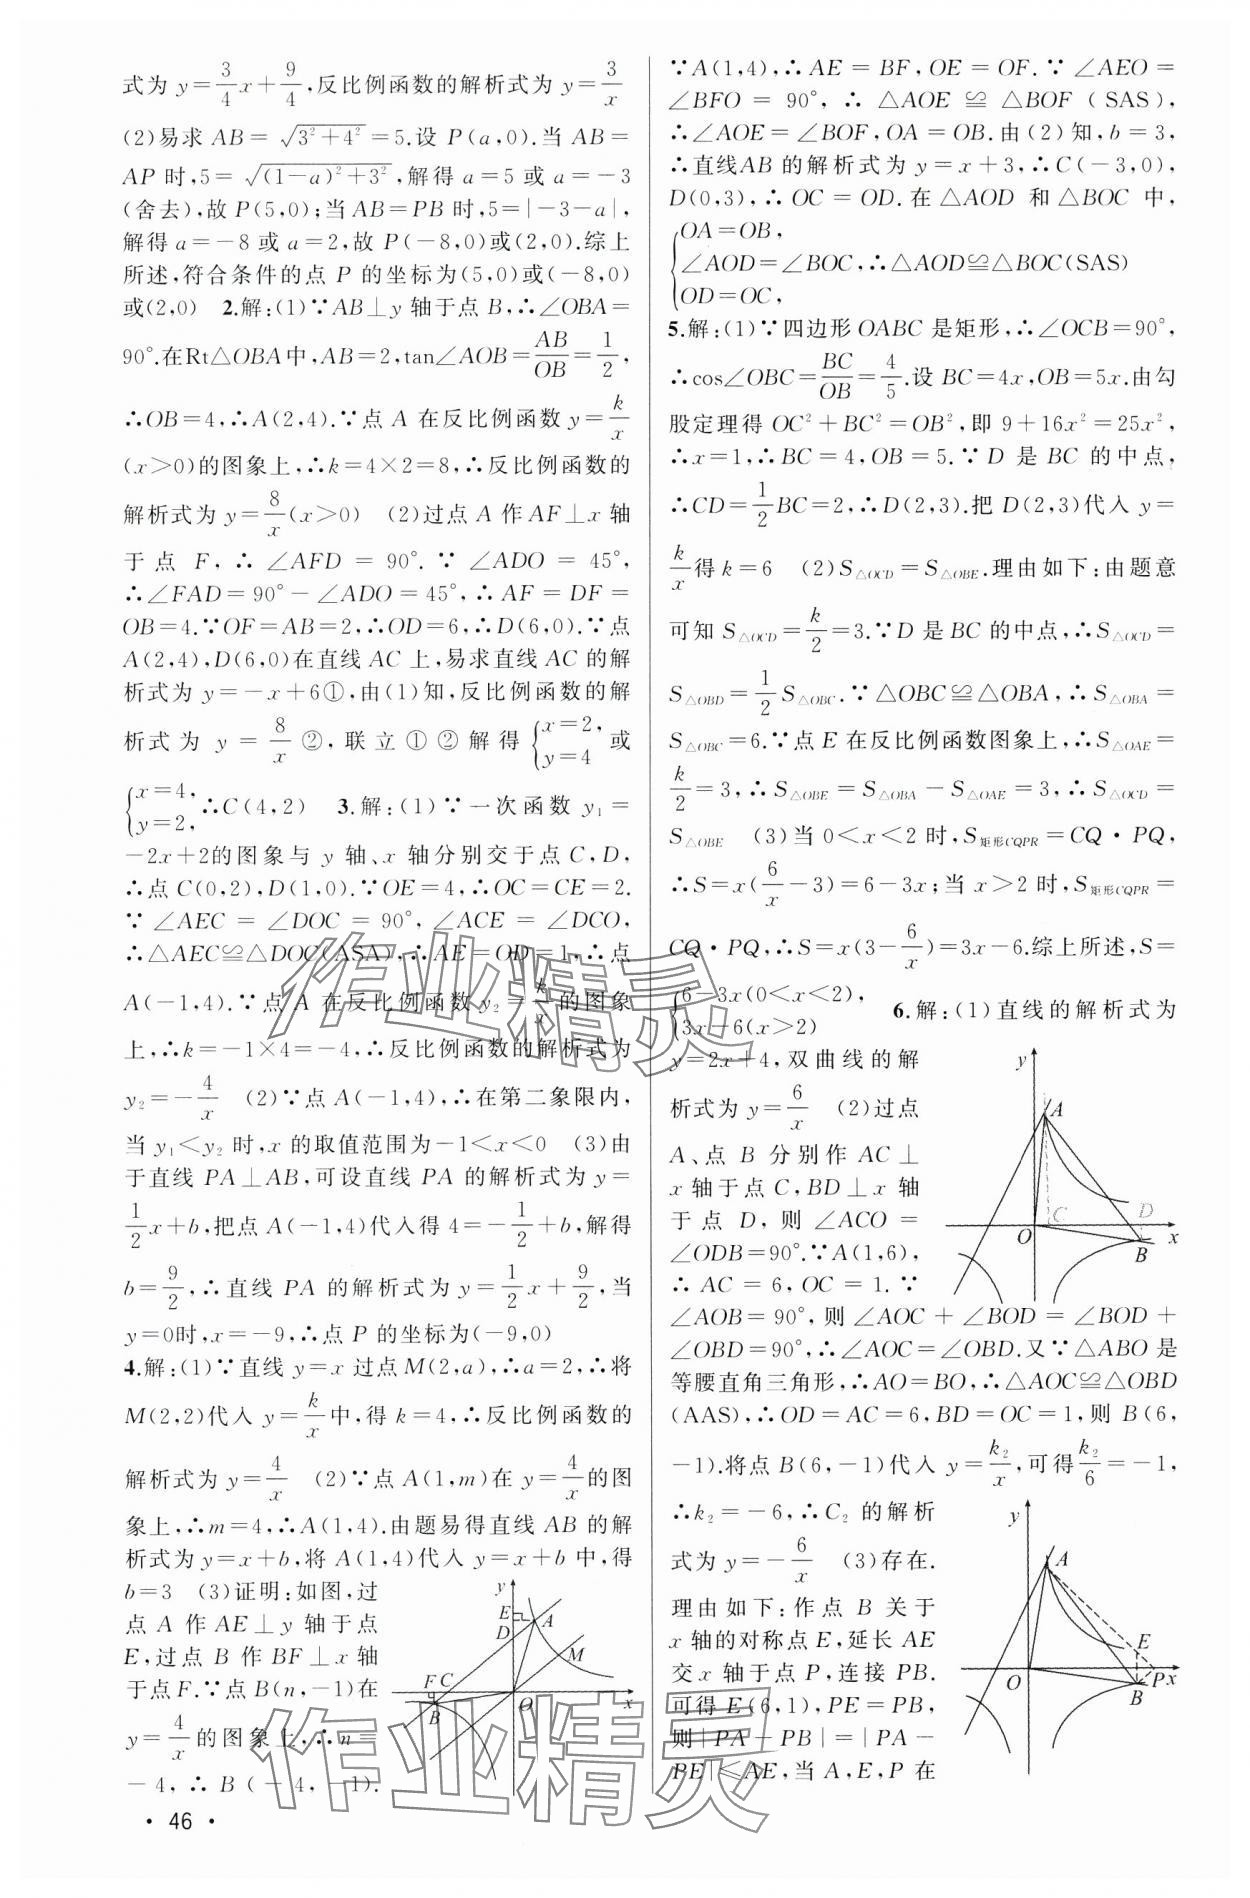 式为 y=3/4x+9/4,反比例函数的解析式为 y=3/x
(2)易求 AB=√(3²+4²)=5.设 P(a,0).当 AB=
AP 时,5=√((1-a)²+3²),解得 a=5 或 a=-3
(舍去),故 P(5,0);当 AB=PB 时,5=|-3-a|,
解得 a=-8 或 a=2,故 P(-8,0)或(2,0).综上
所述,符合条件的点 P 的坐标为(5,0)或(-8,0)
或(2,0) 2.解:(1)∵AB⊥y 轴于点 B,∴∠OBA=
90°.在Rt△OBA中,AB=2,tan∠AOB=AB/OB=1/2,
∴OB=4,∴A(2,4).∵点 A 在反比例函数 y=k/x
(x>0)的图象上,∴k=4×2=8,∴反比例函数的
解析式为 y=8/x(x>0) (2)过点 A 作 AF⊥x 轴
于点 F,∴∠AFD=90°.∵∠ADO=45°,
∴∠FAD=90°-∠ADO=45°,∴AF=DF=
OB=4.∵OF=AB=2,∴OD=6,∴D(6,0).∵点
A(2,4),D(6,0)在直线 AC 上,易求直线 AC 的解
析式为 y=-x+6①,由(1)知,反比例函数的解
析式为 y=8/x ②,联立①②解得{x=2,y=4 或
{x=4,y=2,∴C(4,2) 3.解:(1)∵一次函数 y₁=
-2x+2的图象与 y 轴、x 轴分别交于点 C,D,
∴点 C(0,2),D(1,0).∵OE=4,∴OC=CE=2.
∵∠AEC=∠DOC=90°,∠ACE=∠DCO,
∴△AEC≌△DOC(ASA),∴AE=OD=1,∴点
A(-1,4).∵点 A 在反比例函数 y₂=k/x的图象
上,∴k=-1×4=-4,∴反比例函数的解析式为
y₂=-4/x (2)∵点 A(-1,4),∴在第二象限内,
当 y₁<y₂ 时,x 的取值范围为-1<x<0 (3)由
于直线 PA⊥AB,可设直线 PA 的解析式为 y=
1/2x+b,把点 A(-1,4)代入得 4=-1/2+b,解得
b=9/2,∴直线 PA 的解析式为 y=1/2x+9/2,当
y=0时,x=-9,∴点 P 的坐标为(-9,0)
4.解:(1)∵直线 y=x 过点 M(2,a),∴a=2,∴将
M(2,2)代入 y=k/x中,得 k=4,∴反比例函数的
解析式为 y=4/x (2)∵点 A(1,m)在 y=4/x的图
象上,∴m=4,∴A(1,4).由题易得直线 AB 的解
析式为 y=x+b,将 A(1,4)代入 y=x+b 中,得
b=3 (3)证明:如图,过
点 A 作 AE⊥y 轴于点
E,过点 B 作 BF⊥x 轴
于点 F.∵点 B(n,-1)在
y=4/x的图象上,∴n=
-4,∴B(-4,-1).
y E A D M F C B O x
∵A(1,4),∴AE=BF,OE=OF.∵∠AEO=
∠BFO=90°,∴△AOE≌△BOF(SAS),
∴∠AOE=∠BOF,OA=OB.由(2)知,b=3,
∴直线AB 的解析式为 y=x+3,∴C(-3,0),
D(0,3),∴OC=OD.在△AOD 和△BOC 中,
{OA=OB,
∠AOD=∠BOC,∴△AOD≌△BOC(SAS)
OD=OC,
5.解:(1)∵四边形 OABC 是矩形,∴∠OCB=90°,
∴cos∠OBC=BC/OB=4/5.设 BC=4x,OB=5x.由勾
股定理得 OC²+BC²=OB²,即 9+16x²=25x²,
∴x=1,∴BC=4,OB=5.∵D 是 BC 的中点,
∴CD=1/2BC=2,∴D(2,3).把 D(2,3)代入 y=
k/x得 k=6 (2)S△OCD=S△OBE.理由如下:由题意
可知 S△OCD=k/2=3.∵D 是 BC 的中点,∴S△OCD=
S△OBD=1/2S△OBC.∵△OBC≌△OBA,∴S△OBA=
S△OBC=6.∵点 E 在反比例函数图象上,∴S△OAE=
k/2=3,∴S△OBE=S△OBA-S△OAE=3,∴S△OCD=
S△OBE (3)当 0<x<2 时,S矩形CQPR=CQ·PQ,
∴S=x(6/x-3)=6-3x;当 x>2 时,S矩形CQPR=
CQ·PQ,∴S=x(3-6/x)=3x-6.综上所述,S=
{6-3x(0<x<2),
3x-6(x>2) 6.解:(1)直线的解析式为
y=2x+4,双曲线的解
析式为 y=6/x (2)过点
A、点 B 分别作 AC⊥
x 轴于点 C,BD⊥x 轴
于点 D,则∠ACO=
∠ODB=90°.∵A(1,6),
∴AC=6,OC=1.∵
∠AOB=90°,则∠AOC+∠BOD=∠BOD+
∠OBD=90°,∴∠AOC=∠OBD.又∵△ABO 是
等腰直角三角形,∴AO=BO,∴△AOC≌△OBD
(AAS),∴OD=AC=6,BD=OC=1,则 B(6,
-1).将点 B(6,-1)代入 y=k₂/x,可得k₂/6=-1,
∴k₂=-6,∴C₂ 的解析
式为 y=-6/x (3)存在.
理由如下:作点 B 关于
x 轴的对称点 E,延长 AE
交 x 轴于点 P,连接 PB.
可得 E(6,1),PE=PB,
则|PA-PB|=|PA-
PE|≤AE,当 A,E,P 在
y A C D O B x
y A E O B P x
作业精灵
作业精灵
· 46 ·